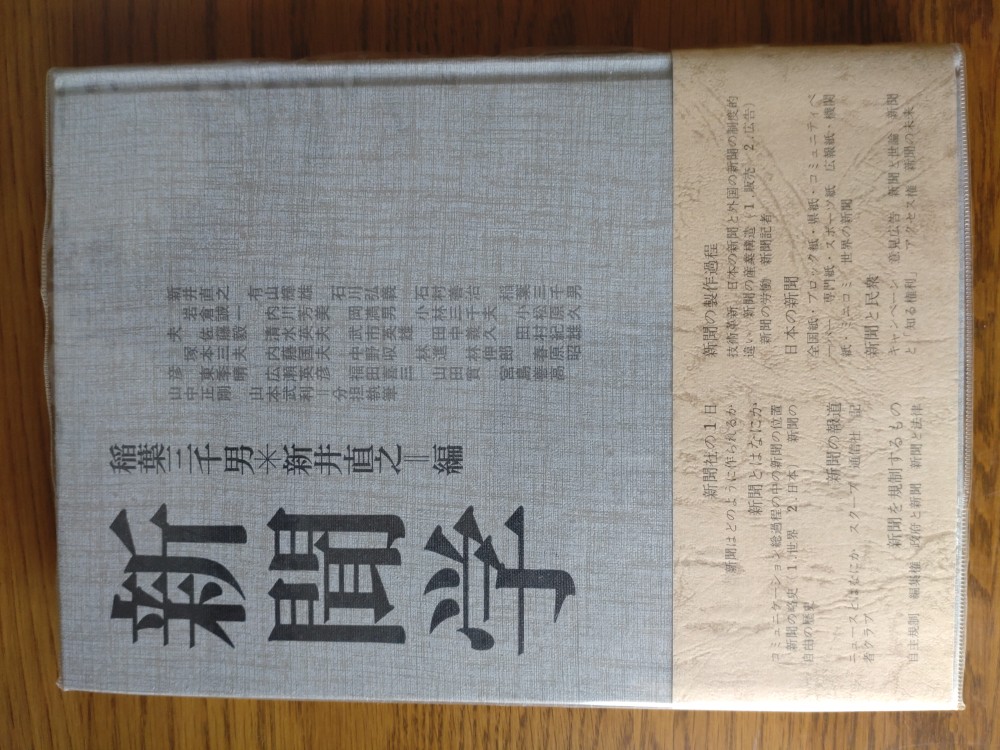 新聞学
稲葉三千男＊新井直之＝編
新井直之 有山輝雄 石川弘義 石村善治 稲葉三千男
岩倉誠一 内川芳美 岡満男
夫 佐藤毅 清水英夫 武市英雄 田中義久 田村紀雄
塚本三夫 内藤國夫 中野収 林進 林伸郎 春原昭
彦 東季晴 広瀬英彦
山中正剛 山本武利＝分担執筆
新聞社の1日
新聞はどのように作られるか
新聞とはなにか
コミュニケーションと総過程の中の新聞の位置
新聞の略史（1.世界 2.日本） 新聞の
自由の歴史
新聞の報道
ニュースとはなにか スクープ 通信社 記
者クラブ
新聞を規制するもの
自主規制 編集権 政府と新聞 新聞と法律
新聞の製作過程
技術革新 日本の新聞と外国の新聞の制度的
違い 新聞の産業構造（1.販売 2.広告）
新聞の労働 新聞記者
日本の新聞
全国紙・ブロック紙・県紙・コミュニティペ
ーパー 専門紙・スポーツ紙 広報紙・機関
紙・ミニコミ 世界の新聞
新聞と民衆
キャンペーン 意見広告 新聞と世論 新聞
と「知る権利」 アクセス権 新聞の未来